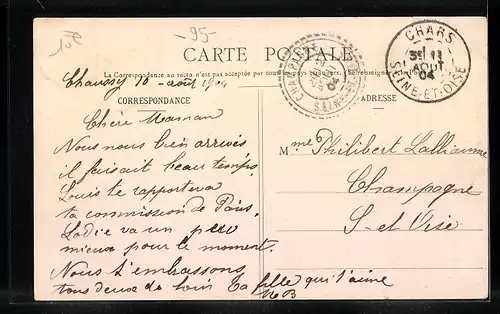 -95-
CARTE POSTALE
La Correspondance au recto n'est pas acceptée par tous les pays étrangers. (Se renseigner à la Poste)
CORRESPONDANCE
ADRESSE
CHARS
11
AOUT
04
SEINE-ET-OISE
CHAMPAGNE
10 août 1904
Chère Maman
Nous nous bien arrivés
il faisait beau temps.
Louis te rapportera
ta commission de Paris.
va un peu
mieux pour le moment.
Nous t'embrassons
tous deux de loin Ta fille qui t'aime
MB
Mme Philibert Lallianme
Champagne
S-et Oise